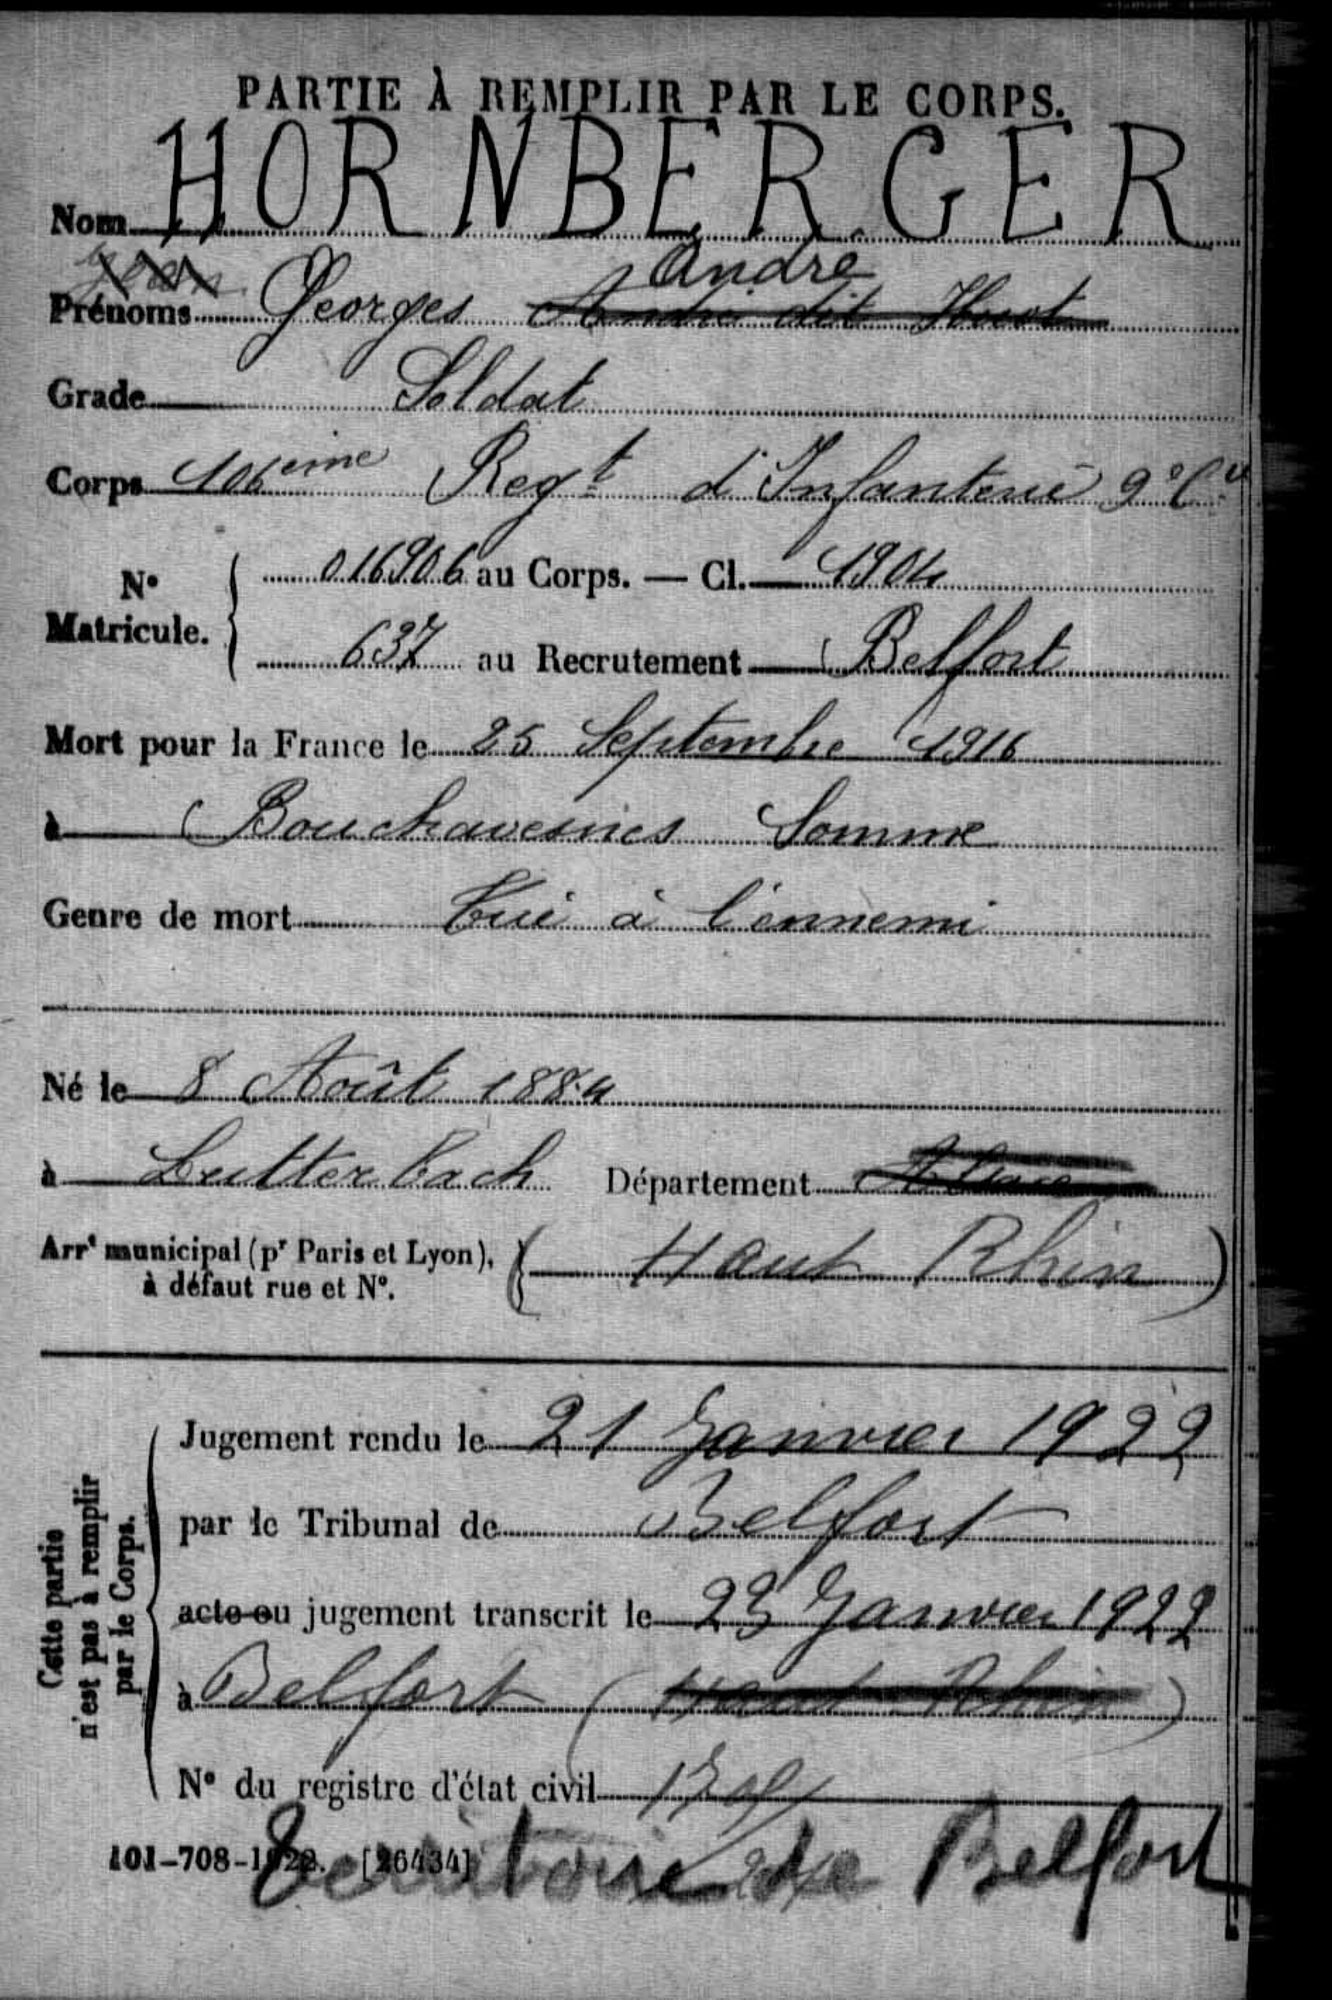 PARTIE À REMPLIR PAR LE CORPS.
Nom HORNBERGER
André
Prénoms Georges André dit
Grade Soldat
Corps 106ème Regt d'Infanterie 9e Cie
N° Matricule. 016906 au Corps. — Cl. 1904
637 au Recrutement Belfort
Mort pour la France le 25 Septembre 1916
à Bouchavesnes Somme
Genre de mort Tué à l'ennemi
Né le 8 Août 1884
à Lutterbach Département Alsace
Arrt municipal (pr Paris et Lyon), à défaut rue et N°. (Haut Rhin)
Cette partie n'est pas à remplir par le Corps.
Jugement rendu le 21 Janvier 1922
par le Tribunal de Belfort
acte ou jugement transcrit le 23 Janvier 1922
à Belfort (Haut Rhin)
N° du registre d'état civil
101-708-1922. [26434]
Territoire de Belfort